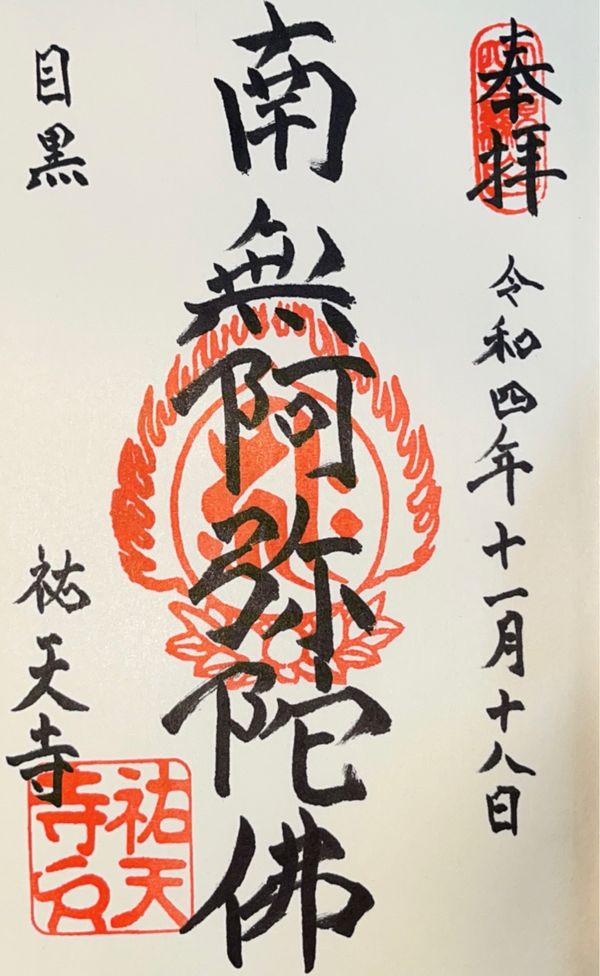 奉拝
令和四年十一月十八日
南無阿弥陀佛
目黒
祐天寺
祐天
寺印